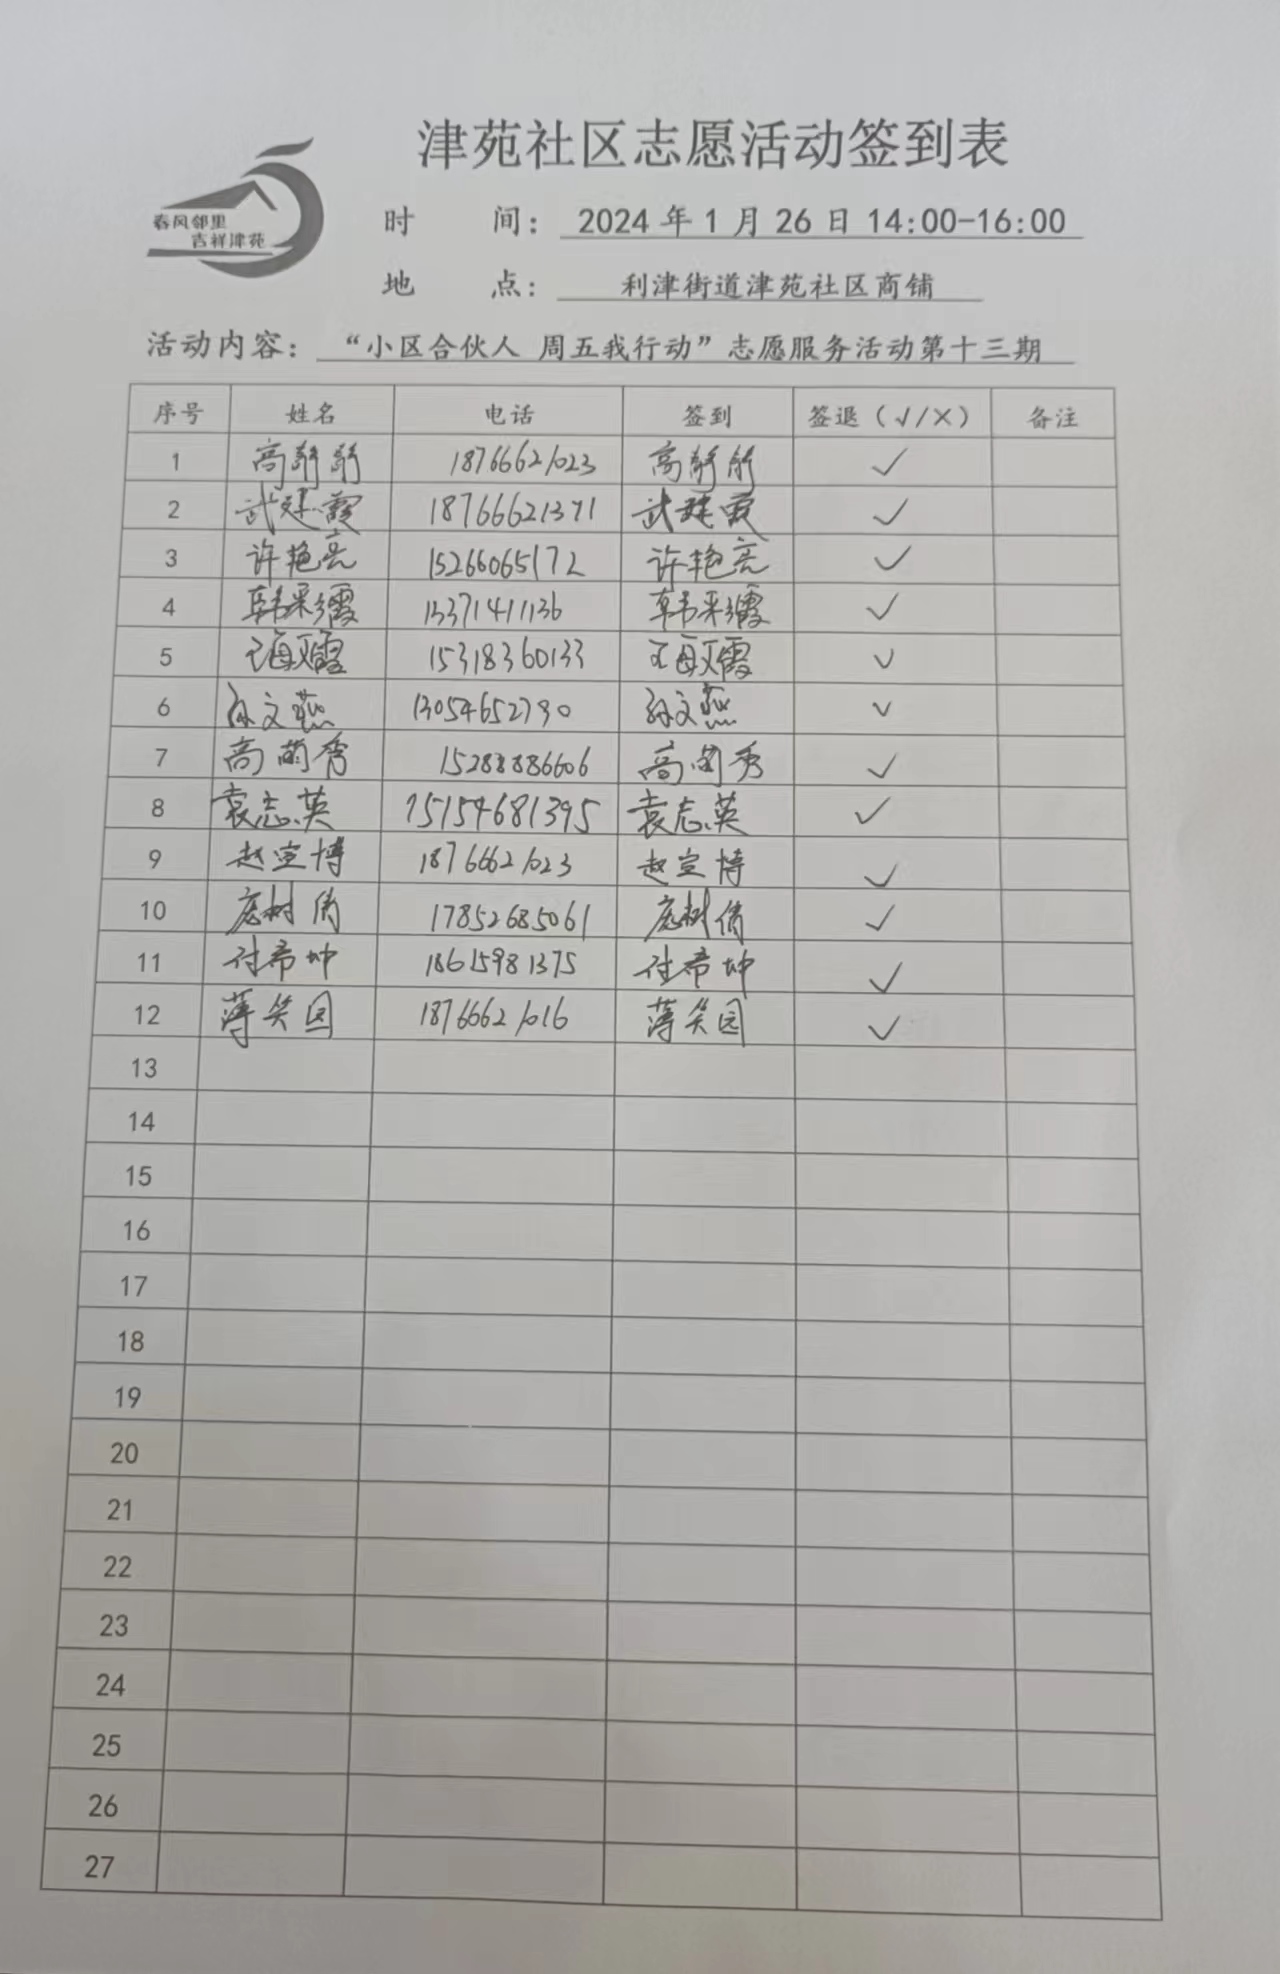 津苑社区志愿活动签到表
春风邻里
吉祥津苑
时 间： 2024年1月26日14:00-16:00
地 点： 利津街道津苑社区商铺
活动内容： “小区合伙人 周五我行动”志愿服务活动第十三期
序号 姓名 电话 签到 签退（√/×） 备注
1 高静静 18766621023 高静静 √
2 武建霞 18766621371 武建霞 √
3 许艳亮 15266065172 许艳亮 √
4 韩彩霞 13371411136 韩彩霞 √
5 王海霞 15318360133 王海霞 √
6 孙文燕 13054652790 孙文燕 √
7 高萌秀 15288886606 高萌秀 √
8 袁志英 15154681395 袁志英 √
9 赵宣博 18766621023 赵宣博 √
10 树倩 17852685061 树倩 √
11 付希坤 18615981375 付希坤 √
12 薄笑园 18766621016 薄笑园 √
13
14
15
16
17
18
19
20
21
22
23
24
25
26
27